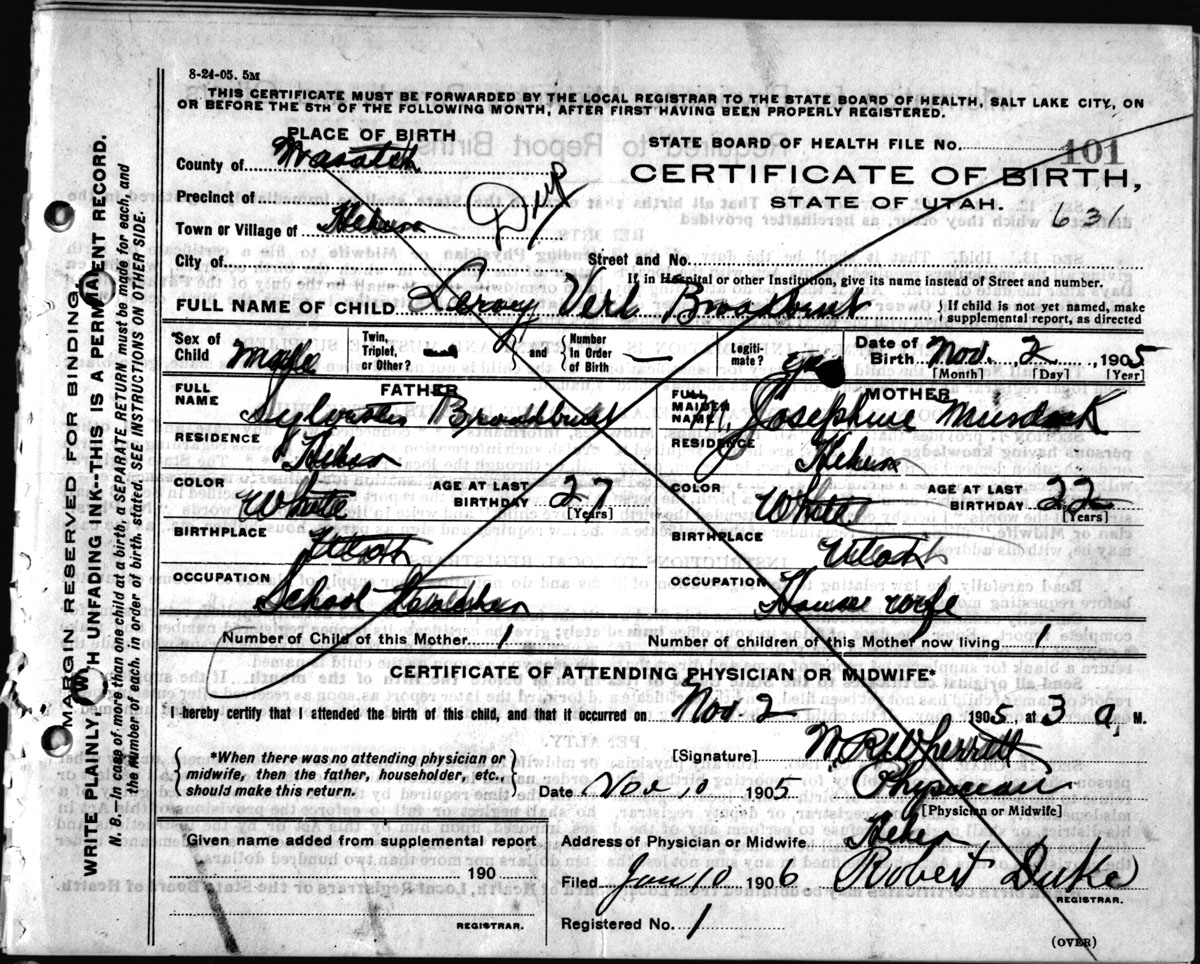 8-24-05. 5M
THIS CERTIFICATE MUST BE FORWARDED BY THE LOCAL REGISTRAR TO THE STATE BOARD OF HEALTH, SALT LAKE CITY, ON
OR BEFORE THE 5TH OF THE FOLLOWING MONTH, AFTER FIRST HAVING BEEN PROPERLY REGISTERED.
PLACE OF BIRTH
STATE BOARD OF HEALTH FILE No. 101
County of Wasatch
CERTIFICATE OF BIRTH,
Precinct of
Dup
STATE OF UTAH. 631
Town or Village of Heber
City of Street and No.
If in Hospital or other Institution, give its name instead of Street and number.
FULL NAME OF CHILD Leroy Verl Broadbent { If child is not yet named, make supplemental report, as directed
*Sex of Child Male Twin, Triplet, or Other? and { Number in Order of Birth Legitimate? Date of Birth Nov. 2 1905
[Month] [Day] [Year]
FATHER MOTHER
FULL NAME Sylvester Broadbent FULL MAIDEN NAME Josephine Murdock
RESIDENCE Heber RESIDENCE Heber
COLOR White AGE AT LAST BIRTHDAY 27 [Years] COLOR White AGE AT LAST BIRTHDAY 22 [Years]
BIRTHPLACE Utah BIRTHPLACE Utah
OCCUPATION School Teacher OCCUPATION House wife
Number of Child of this Mother 1 Number of children of this Mother now living 1
CERTIFICATE OF ATTENDING PHYSICIAN OR MIDWIFE*
I hereby certify that I attended the birth of this child, and that it occurred on Nov. 2 1905, at 3 a M.
{ *When there was no attending physician or midwife, then the father, householder, etc., should make this return. }
[Signature] W. R. Wherritt
Date Nov 10 1905 Physician
[Physician or Midwife]
Given name added from supplemental report
190
REGISTRAR.
Address of Physician or Midwife Heber
Filed Jan 10 1906 Robert Duke
REGISTRAR.
Registered No. 1
(OVER)
MARGIN RESERVED FOR BINDING.
WRITE PLAINLY, WITH UNFADING INK--THIS IS A PERMANENT RECORD.
N. B.—In case of more than one child at a birth, a SEPARATE RETURN must be made for each, and
the number of each, in order of birth, stated. SEE INSTRUCTIONS ON OTHER SIDE.